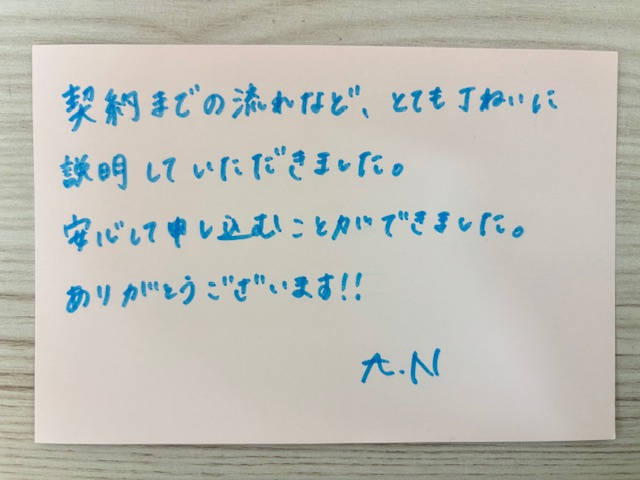 契約までの流れなど、とても丁ねいに
説明していただきました。
安心して申し込むことができました。
ありがとうございます!!
A.N